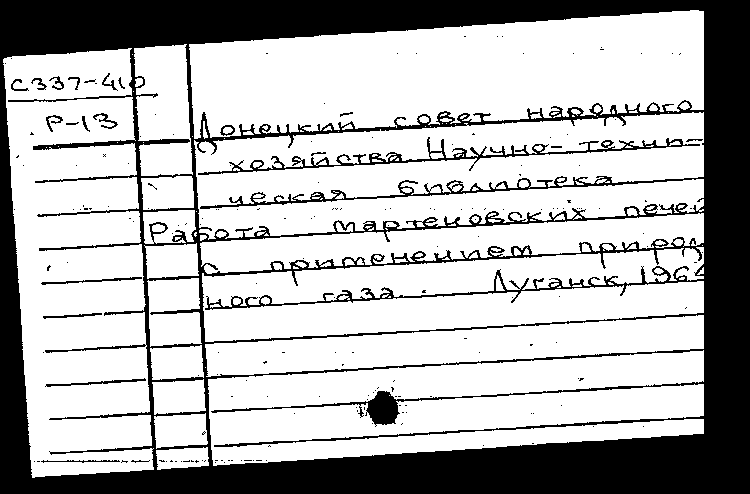 С337-410
Р-13
Донецкий совет народного
хозяйства. Научно-техни-
ческая библиотека
Работа мартеновских печей
с применением природ
ного газа. Луганск, 196